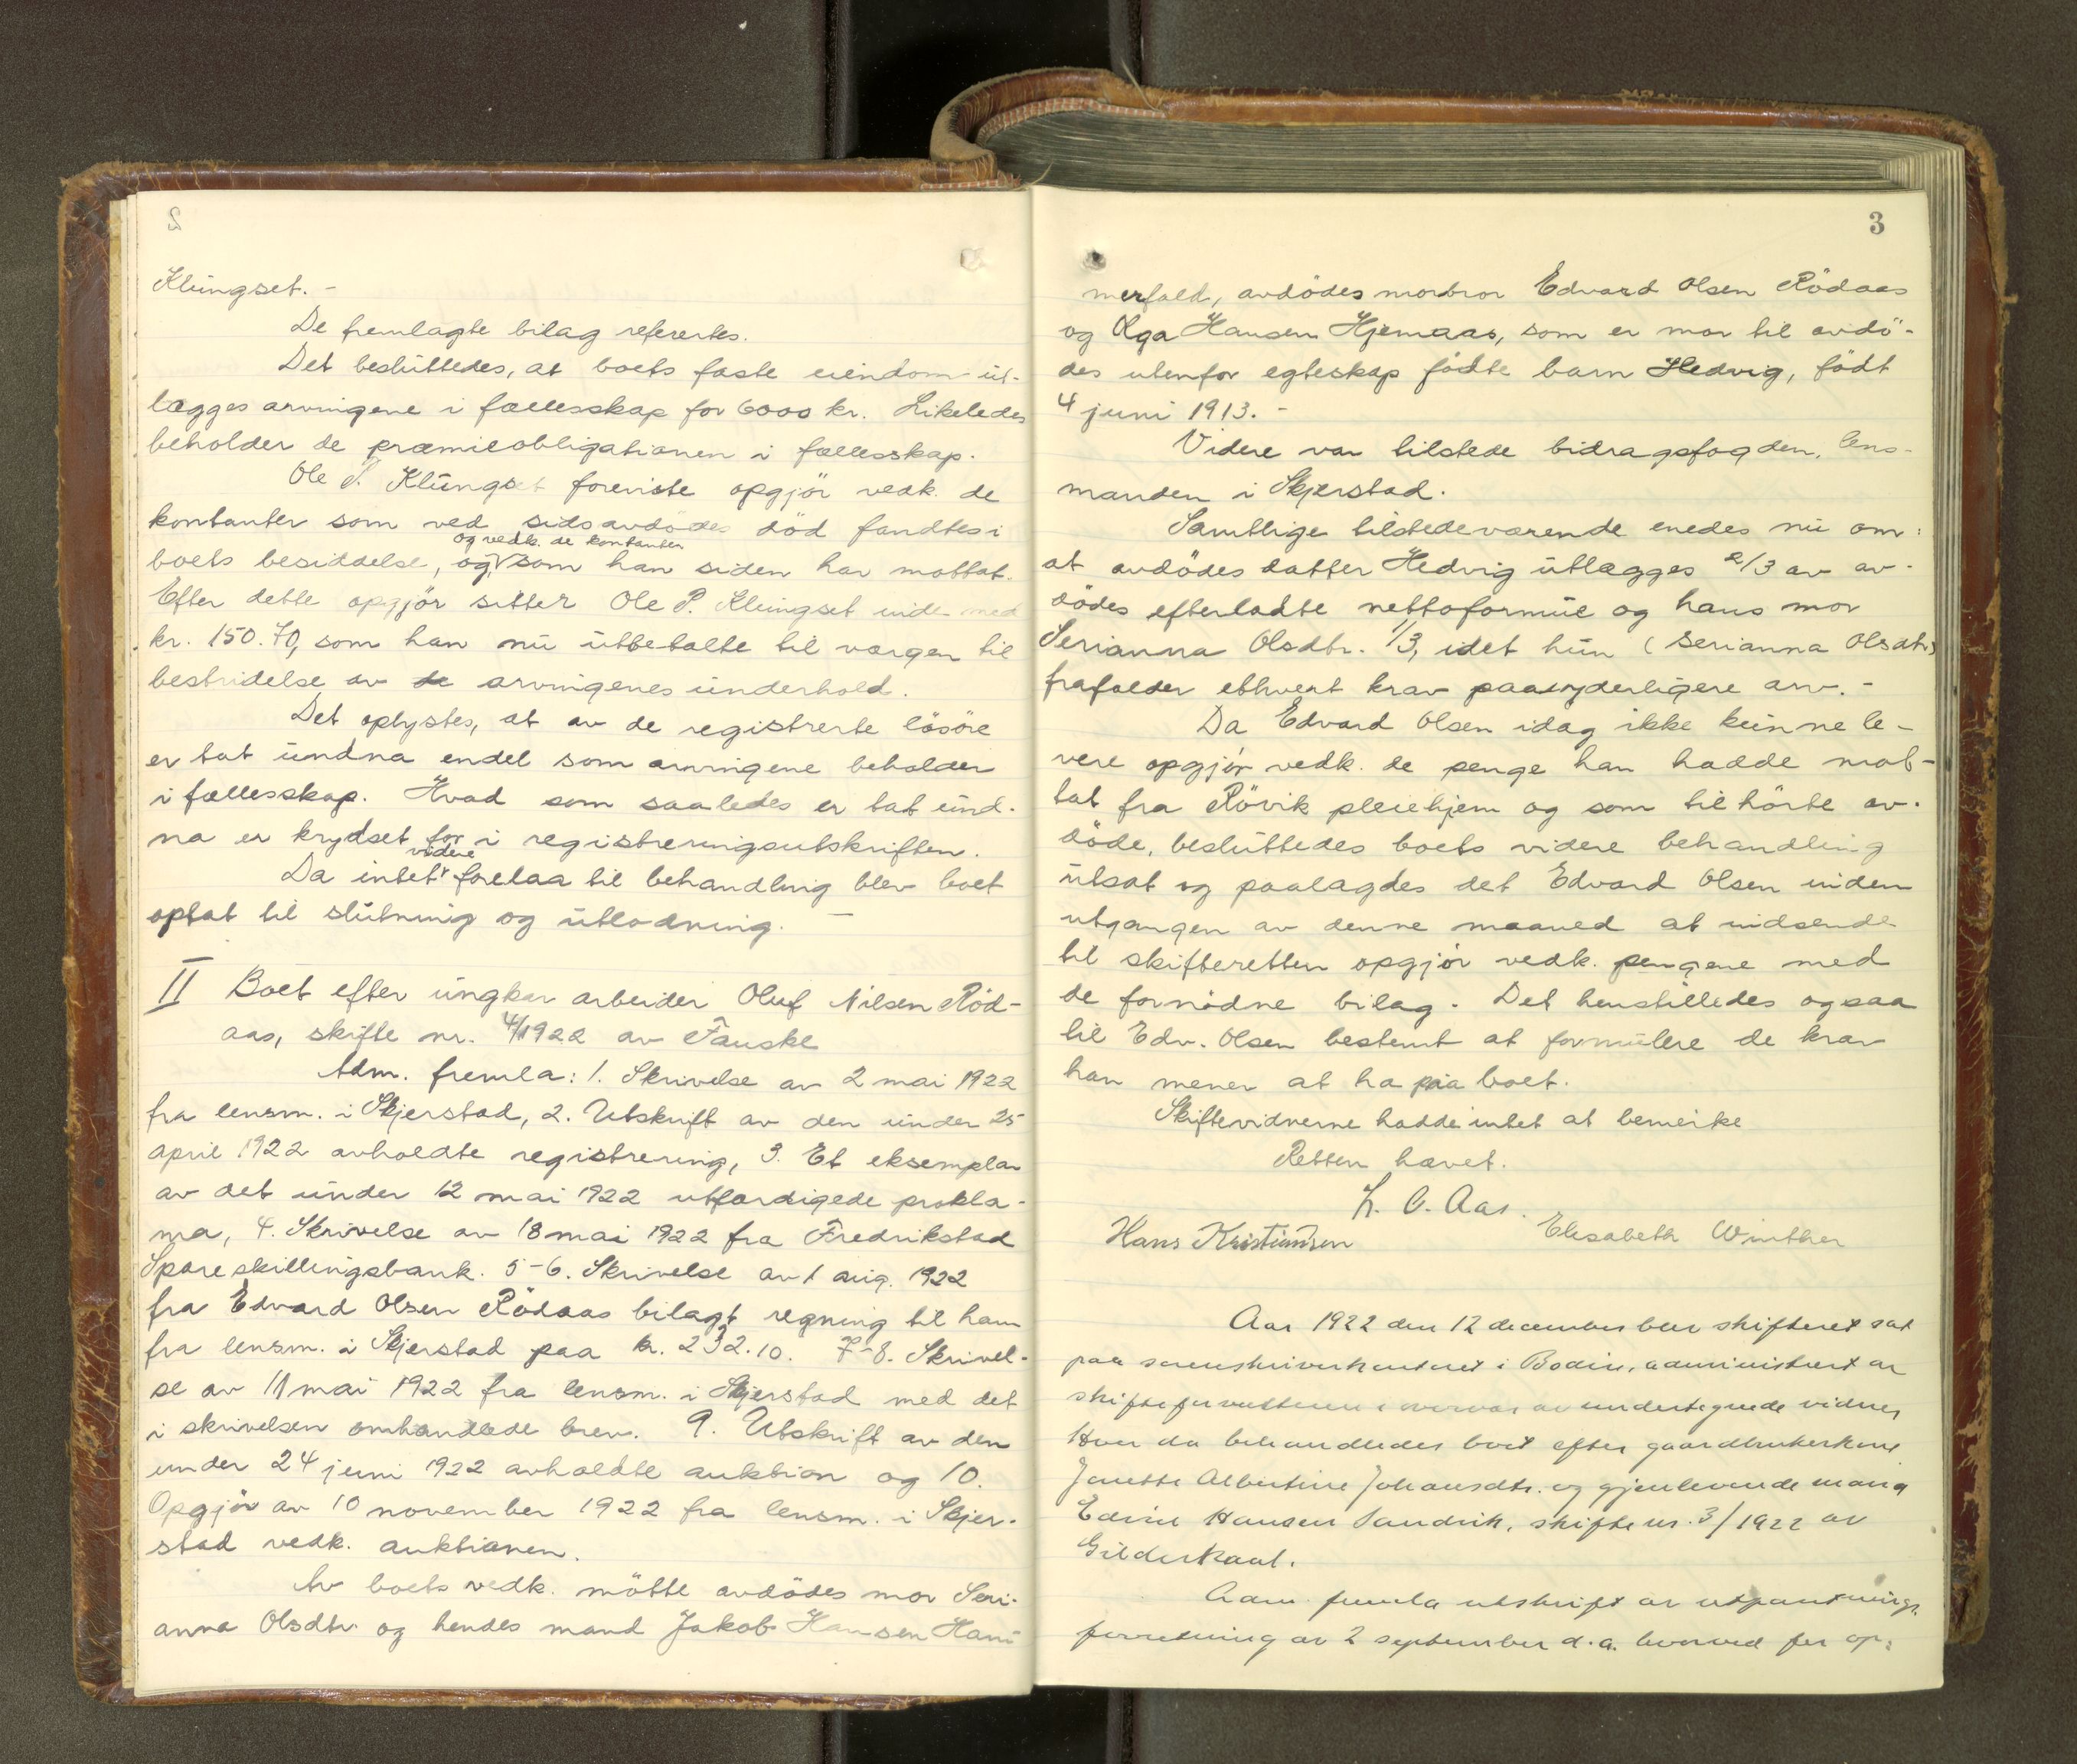 2
Klungset. -
De fremlagte bilag refertes.
Det besluttedes, at boets faste eiendom ut-
lægges arvingene i fællesskap for 6000 kr. Likeledes
beholder de præmieobligationen i fællesskap.
Ole P. Klungset foreviste opgjör vedk. de
kontanter som ved sidsavdödes död fandtes i
og vedk. de kontanter
boets besiddelse, og som han siden har mottat.
Efter dette opgjör sitter Ole P. Klungset inde med
kr. 150.70, som han nu utbetalte til værgen til
bestridelse av de arvingenes underhold.
Det oplystes, at av de registrerte lösöre
er tat undna endel som arvingene beholder
i fællesskap. Hvad som saaledes er tat und-
na er krydset for i registreringsutskriften.
videre
Da intet forelaa til behandling blev boet
optat til slutning og utlodning. -
II Boet efter ungkar arbeider Oluf Nilsen Röd-
aas, skifte nr. 4/1922 av Fauske
Adm. fremla: 1. Skrivelse av 2 mai 1922
fra lensm. i Skjerstad, 2. Utskrift av den under 25
april 1922 avholdte registrering, 3. Et eksemplar
av det under 12 mai 1922 utfærdigede prokla-
ma, 4. Skrivelse av 18 mai 1922 fra Fredrikstad
Spareskillingsbank. 5-6. Skrivelse av 1 aug. 1922
fra Edvard Olsen Rödaas bilagt regning til ham
fra lensm. i Skjerstad paa kr. 232.10. 7-8. Skrivel-
se av 11 mai 1922 fra lensm. i Skjerstad med det
i skrivelsen omhandlede brev. 9. Utskrift av den
under 24 juni 1922 avholdte auktion og 10.
Opgjör av 10 november 1922 fra lensm. i Skjer-
stad vedk. auktionen.
Av boets vedk. mötte avdödes mor Seri-
anna Olsdtr. og hendes mand Jakob Hansen Ham
3
merfald, avdödes morbror Edvard Olsen Rödaas
og Olga Hansen Hjemaas, som er mor til avdö-
des utenfor egteskap födte barn Hedvig, födt
4 juni 1913. -
Videre var tilstede bidragsfogden, lens-
manden i Skjerstad.
Samtlige tilstedeværende enedes nu om:
at avdödes datter Hedvig utlægges 2/3 av av-
dödes efterladte nettoformue og hans mor
Serianna Olsdtr. 1/3, idet hun (Serianna Olsdtr)
frafalder ethvert krav paa yderligere arv. -
Da Edvard Olsen idag ikke kunne le-
vere opgjör vedk. de penge han hadde mot-
tat fra Rövik pleiehjem og som tilhörte av-
döde, besluttedes boets videre behandling
utsat og paalagdes det Edvard Olsen inden
utgangen av denne maaned at indsende
til skifteretten opgjör vedk. pengene med
de fornödne bilag. Det henstilledes ogsaa
til Edv. Olsen bestemt at formulere de krav
han mener at ha paa boet.
Skiftevidnerne hadde intet at bemerke
Retten hævet.
L. C. Aas.
Hans Kristiansen Elisabeth Winther
Aar 1922 den 12 december blev skifteret sat
paa sorenskriverkontoret i Bodin, administrert av
skifteforvalteren i overvær av undertegnede vidner
Hvor da behandledes boet efter gaardbrukerkone
Janette Albertine Johansdtr. og gjenlevende mand
Edvin Hansen Sandvik, skifte nr. 3/1922 av
Gildeskaal.
Adm. fremla utskrift av utpantnings-
forretning av 2 september d.a. hvorved for op-